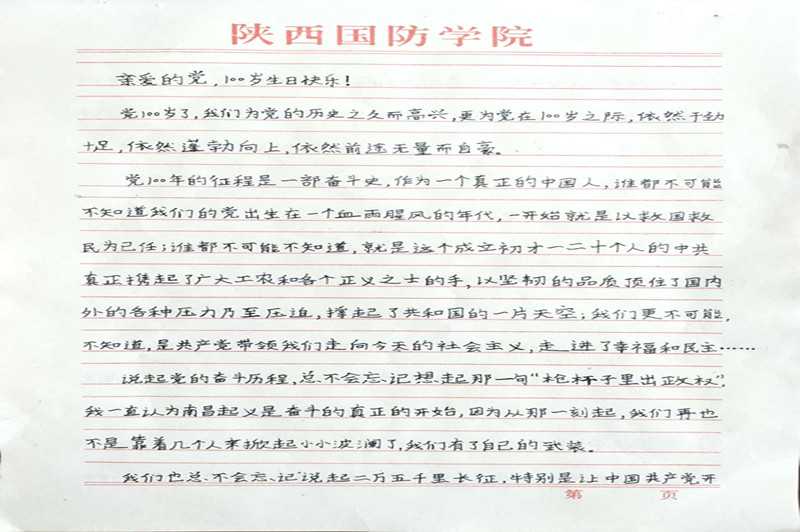 陕西国防学院
亲爱的党,100岁生日快乐!
党100岁了,我们为党的历史之久而高兴,更为党在100岁之际,依然干劲
十足,依然蓬勃向上,依然前途无量而自豪。
党100年的征程是一部奋斗史,作为一个真正的中国人,谁都不可能
不知道我们的党出生在一个血雨腥风的年代,一开始就是以救国救
民为己任;谁都不可能不知道,就是这个成立初才一二十个人的中共
真正携起了广大工农和各个正义之士的手,以坚韧的品质顶住了国内
外的各种压力乃至压迫,撑起了共和国的一片天空;我们更不可能,
不知道,是共产党带领我们走向今天的社会主义,走进了幸福和民主……
说起党的奋斗历程,总不会忘记想起那一句“枪杆子里出政权”,
我一直认为南昌起义是奋斗的真正的开始,因为从那一刻起,我们再也
不是靠着几个人来掀起小小波澜了,我们有了自己的武装。
我们也总不会忘记说起二万五千里长征,特别是让中国共产党开
第 页